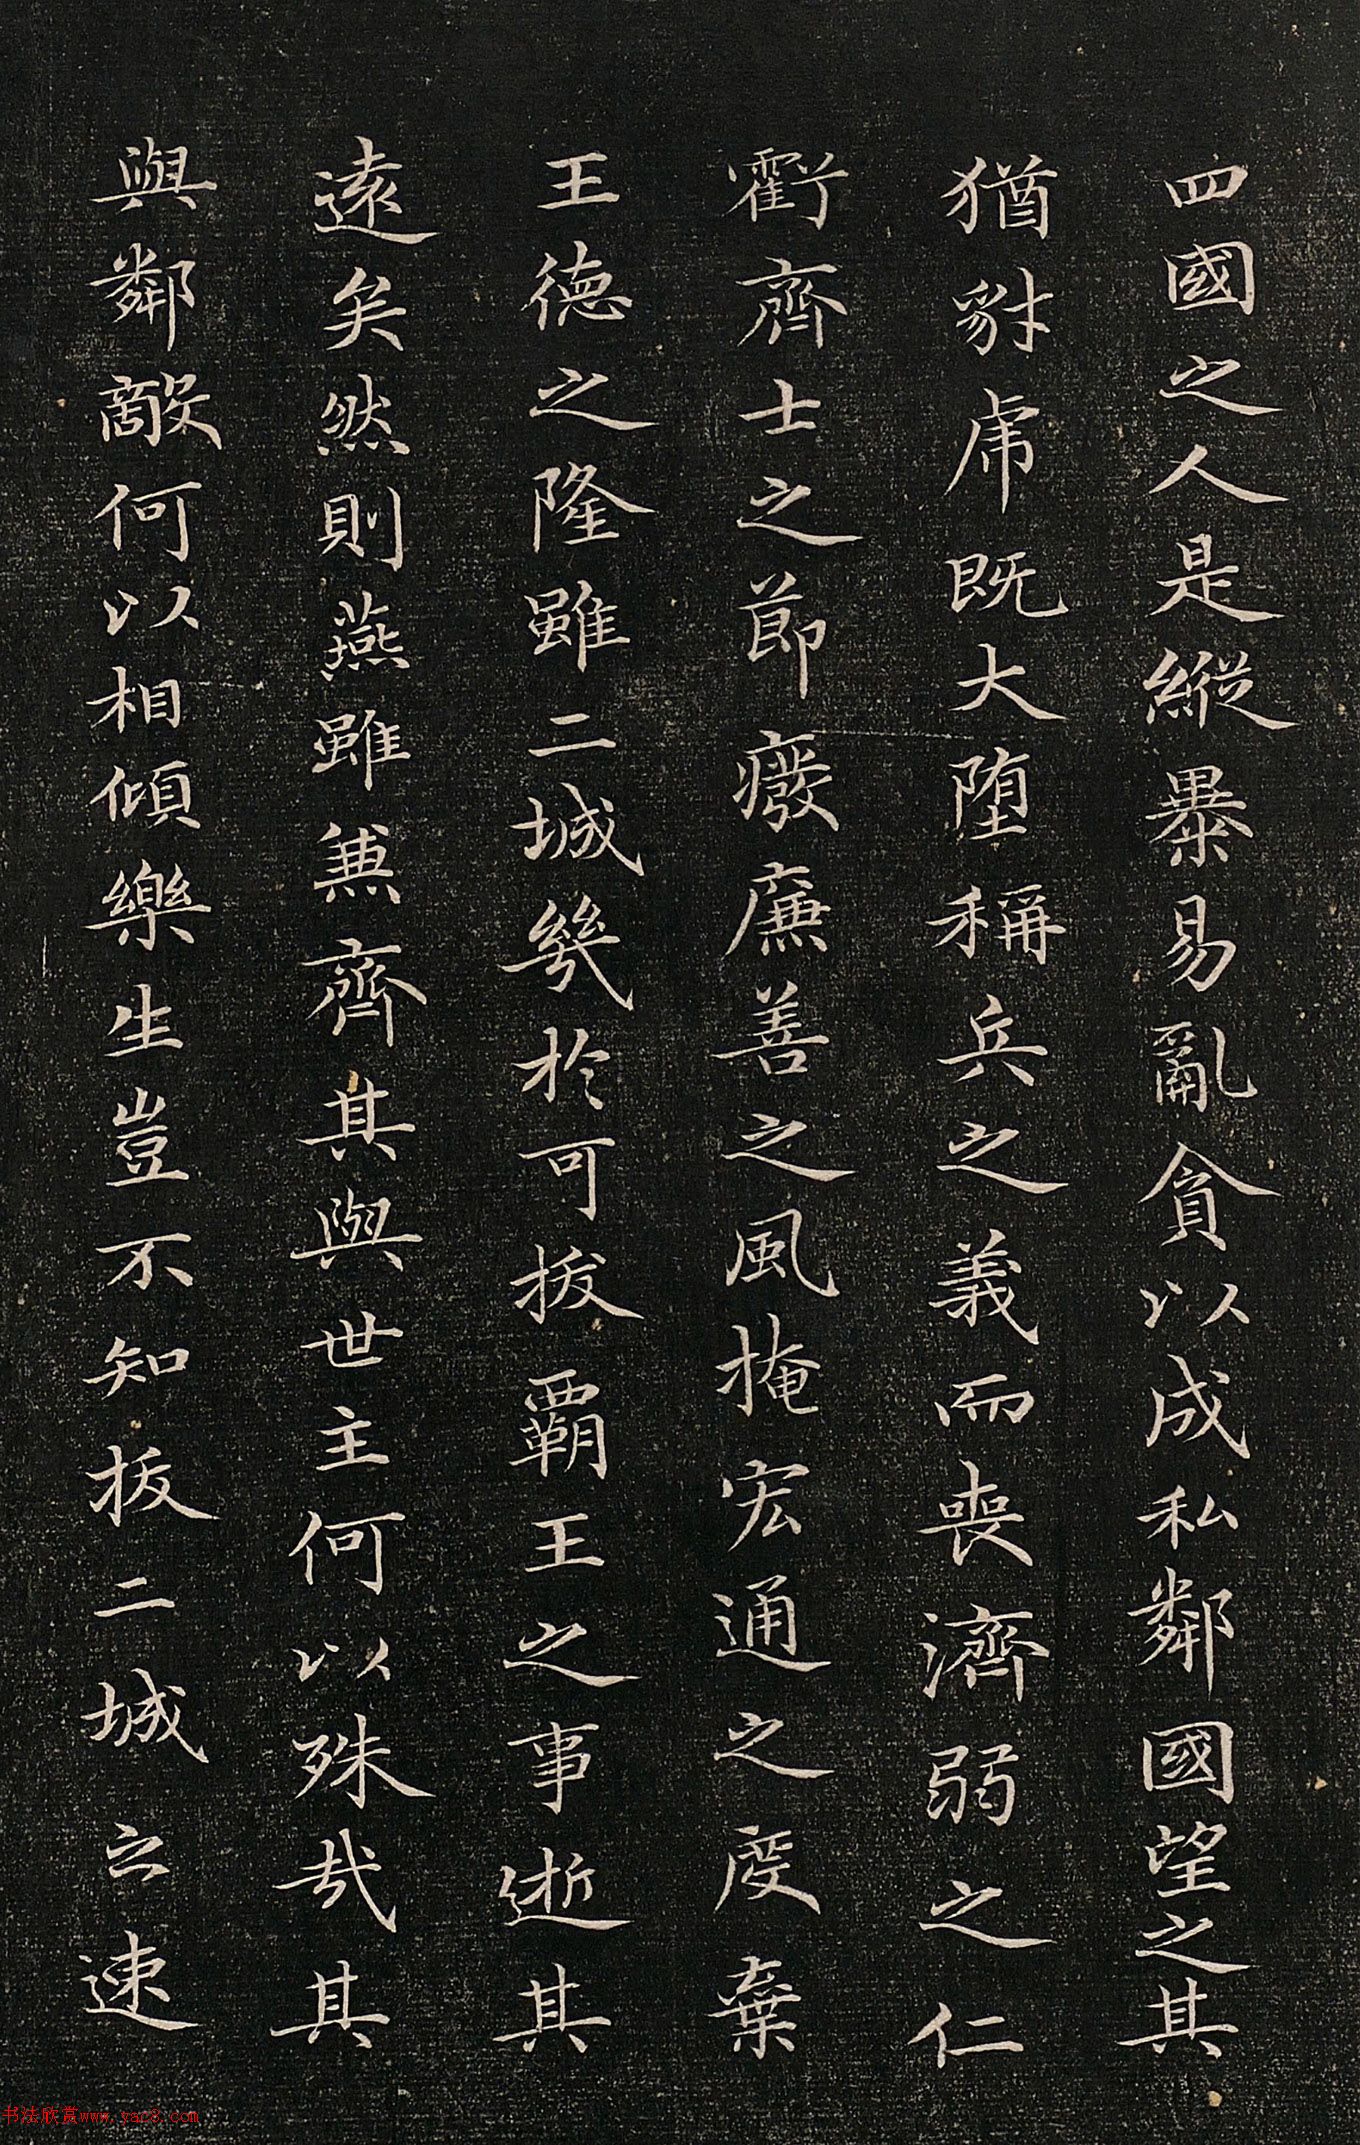 四國之人是縱暴易亂貪以成私鄰國望之其
猶豺虎既大墮稱兵之義而喪濟弱之仁
虧齊士之節廢廉善之風掩宏通之度棄
王德之隆雖二城幾於可拔霸王之事逝其
遠矣然則燕雖兼齊其與世主何以殊哉其
與鄰敵何以相傾樂生豈不知拔二城之速
书法欣赏www.yac8.com